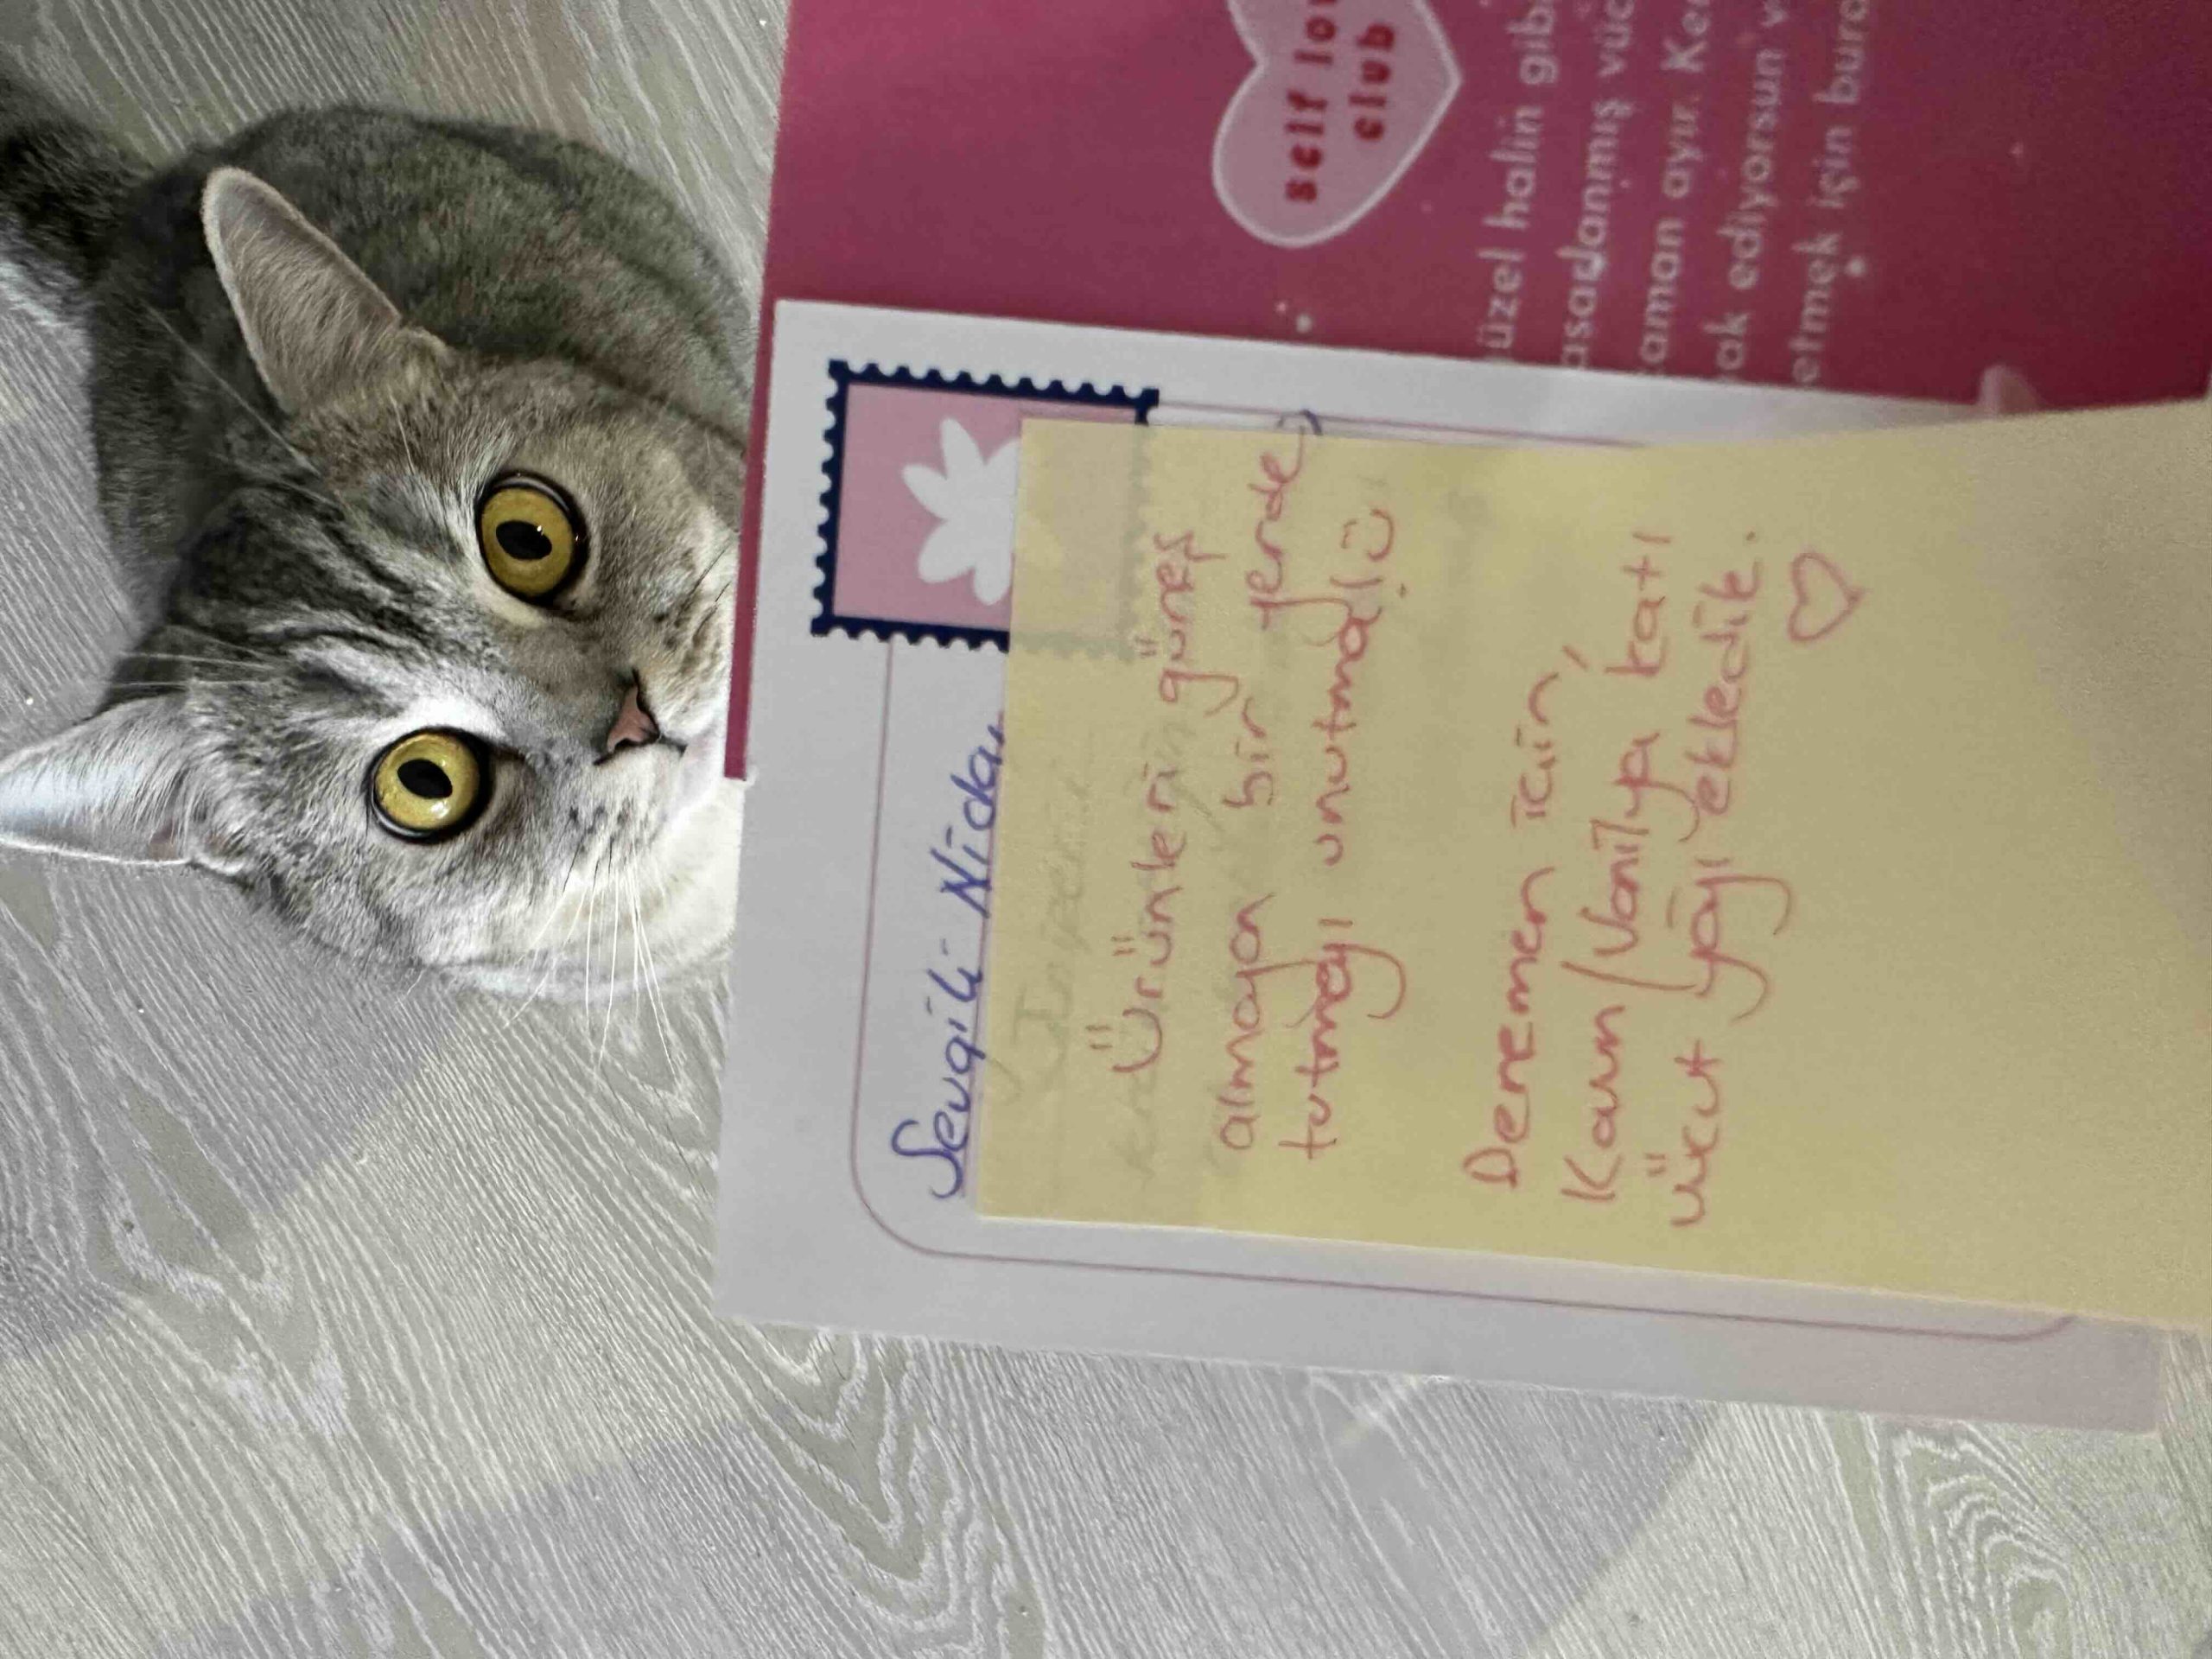 self lo
club
üzel halin gib
asadanmış vüc
zaman ayır. Ke
ak ediyorsun v
etmek için bura
Sevgili Nida,
Ürünlerin güneş
almayan bir yerde
tutmayı unutmaa!ü
Denemen için,
Kavun/Vanilya katı
vücut yağı ekledik.